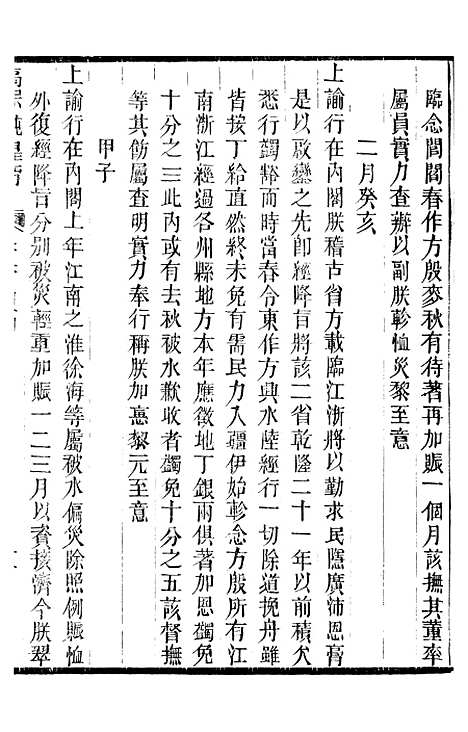 臨念閭閻春作方殷麥秋有待著再加賑一個月該撫其董率
屬員實力查辦以副朕軫恤災黎至意
二月癸亥
上諭行在內閣朕稽古省方載臨江浙將以勤求民隱廣沛恩膏
是以啟鑾之先卽經降旨將該二省乾隆二十一年以前積欠
悉行蠲豁而時當春令東作方興水陸經行一切除道挽舟雖
皆按丁給直然終未免有需民力入疆伊始軫念方殷所有江
南浙江經過各州縣地方本年應徵地丁銀兩俱著加恩蠲免
十分之三此內或有去秋被水歉收者蠲免十分之五該督撫
等其飭屬查明實力奉行稱朕加惠黎元至意
甲子
上諭行在內閣上年江南之淮徐海等屬被水偏災除照例賑恤
外復經降旨分別被災輕重加賑一二三月以資接濟今朕翠